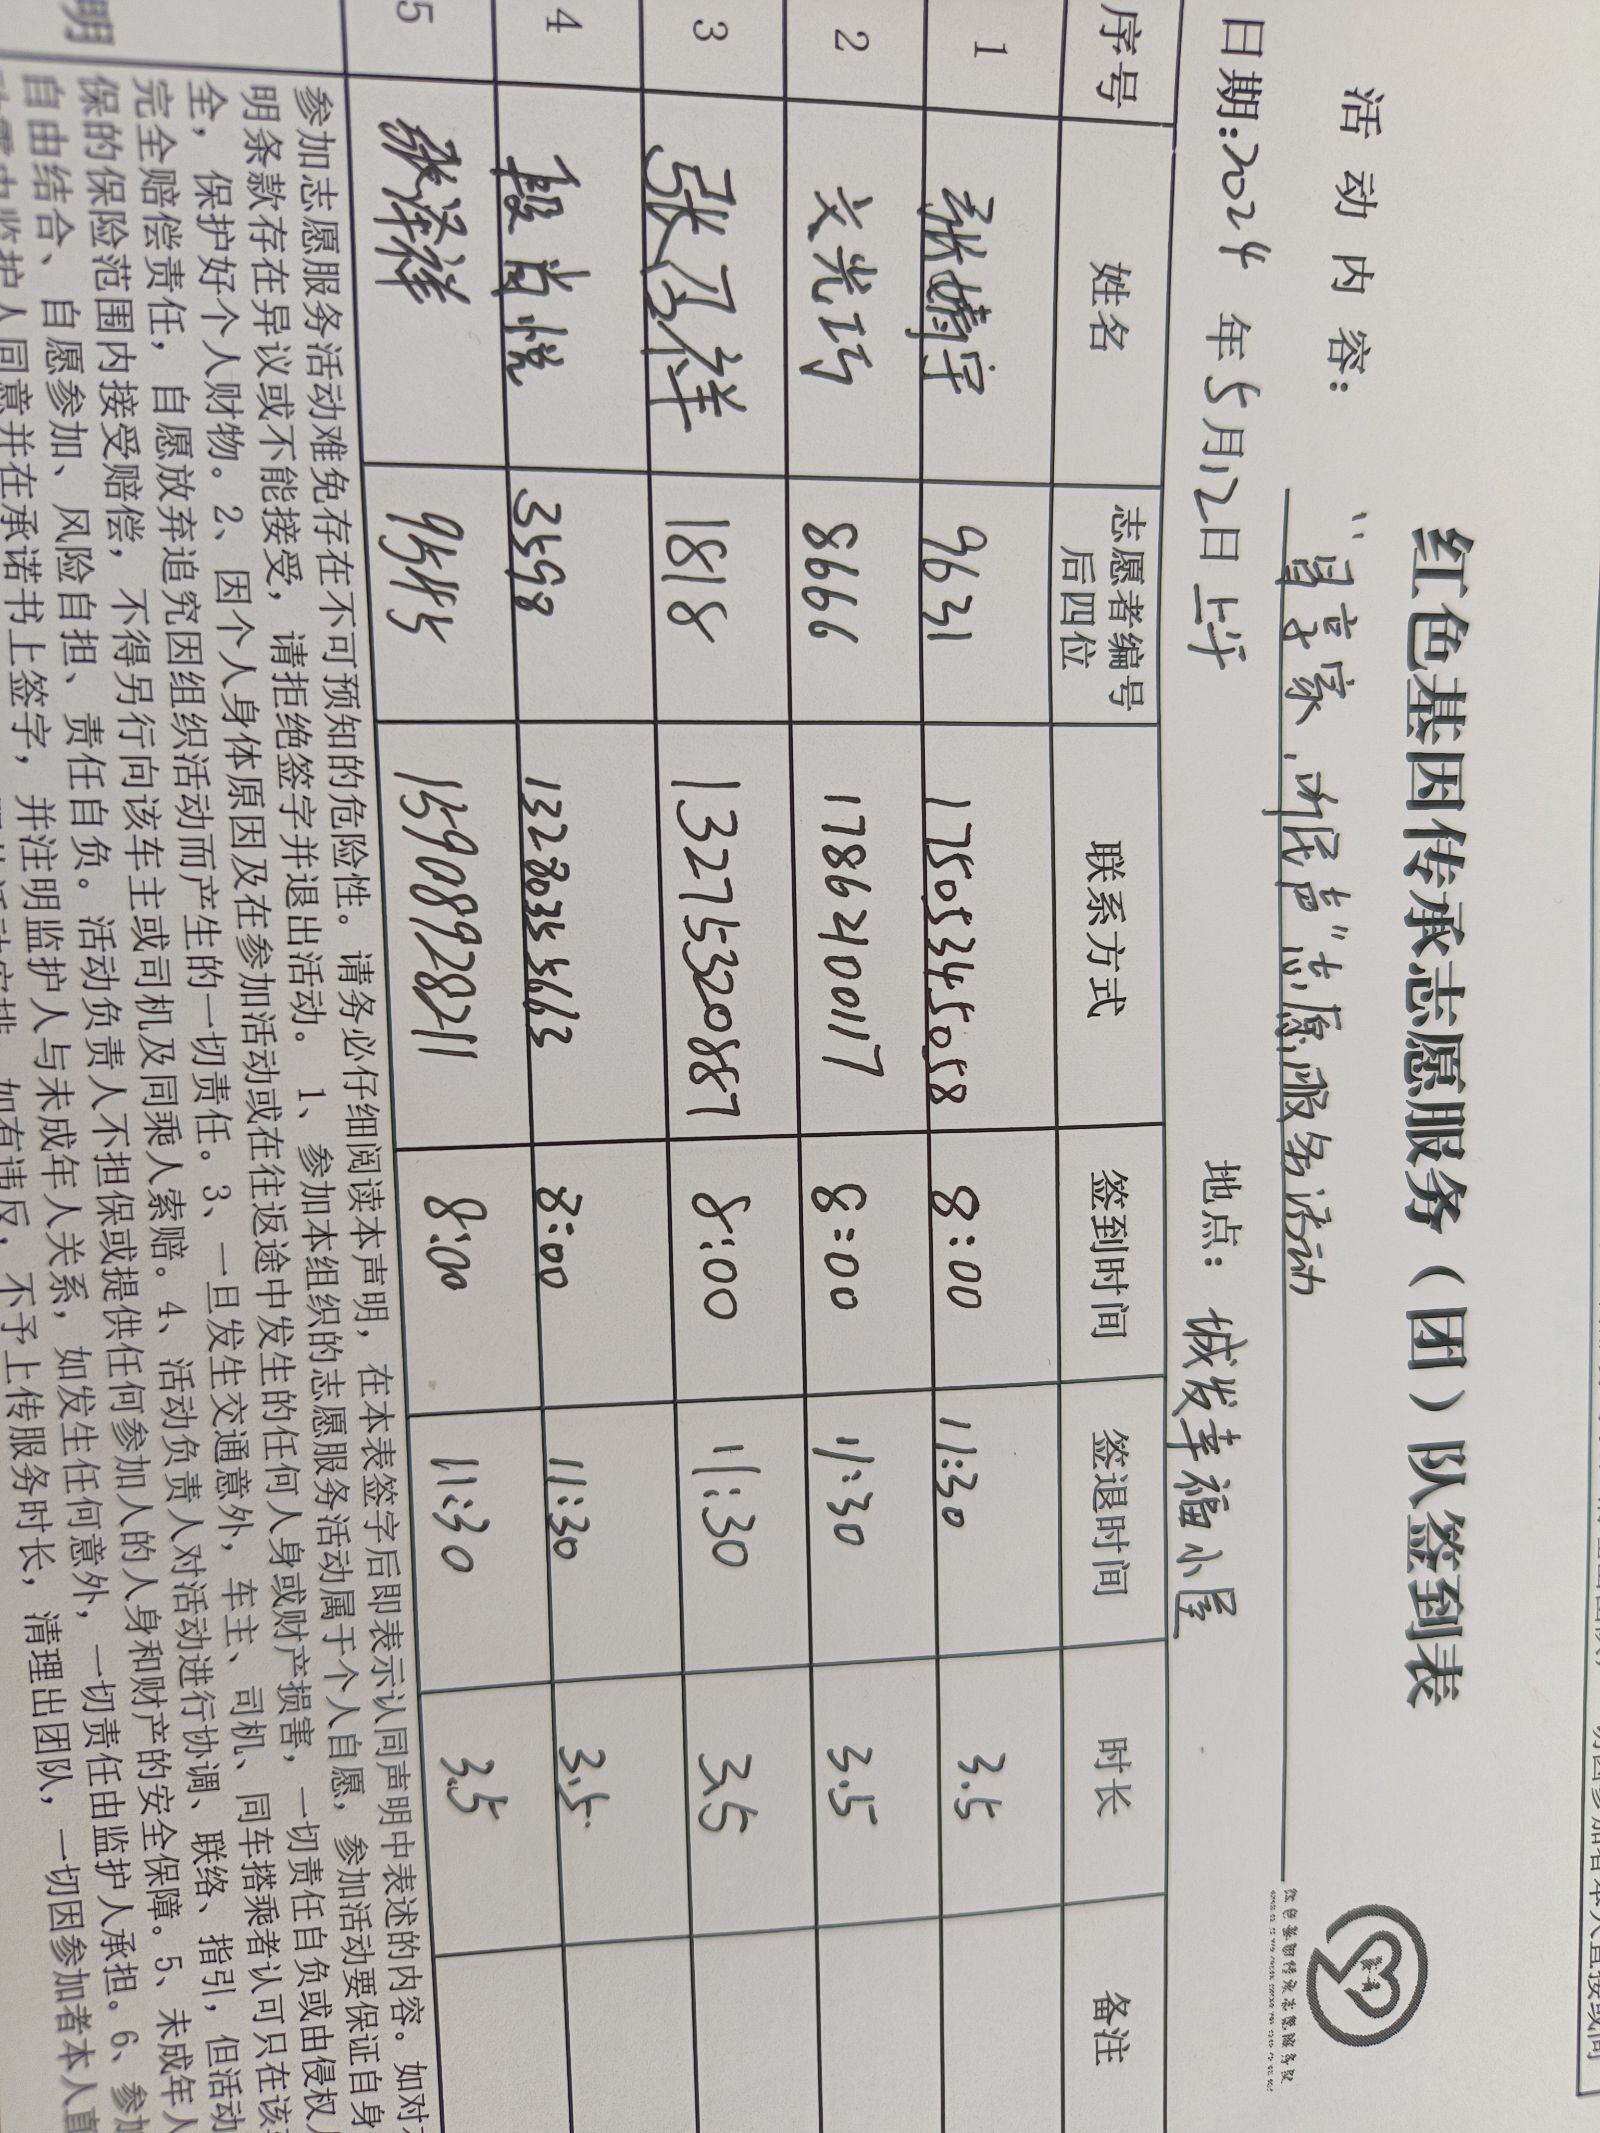 红色基因传承志愿服务（团）队签到表
活动内容：志愿服务活动
日期:2024年5月12日 上午 地点：城发幸福小区
序号 姓名 志愿者编号后四位 联系方式 签到时间 签退时间 时长 备注
1 张婧宇 9631 17505345058 8:00 11:30 3.5
2 文光巧 8666 17862100117 8:00 11:30 3.5
3 张乃祥 1818 13275320887 8:00 11:30 3.5
4 段尚悦 3598 13280355663 8:00 11:30 3.5
5 张泽祥 9545 15908928211 8:00 11:30 3.5
明
参加志愿服务活动难免存在不可预知的危险性。请务必仔细阅读本声明，在本表签字后即表示认同声明中表述的内容。如对
明条款存在异议或不能接受，请拒绝签字并退出活动。 1、参加本组织的志愿服务活动属于个人自愿，参加活动要保证自身
全，保护好个人财物。2、因个人身体原因及在参加活动或在往返途中发生的任何人身或财产损害，一切责任自负或由侵权
完全赔偿责任，自愿放弃追究因组织活动而产生的一切责任。3、一旦发生交通意外，车主、司机、同车搭乘者认可只在该
保的保险范围内接受赔偿，不得另行向该车主或司机及同乘人索赔。4、活动负责人对活动进行协调、联络、指引，但活动
自由结合、自愿参加、风险自担、责任自负。活动负责人不担保或提供任何参加人的人身和财产的安全保障。5、未成年人
监护人同意并在承诺书上签字，并注明监护人与未成年人关系，如发生任何意外，一切责任由监护人承担。6、参加
如有违反，不予上传服务时长，清理出团队，一切因参加者本人直